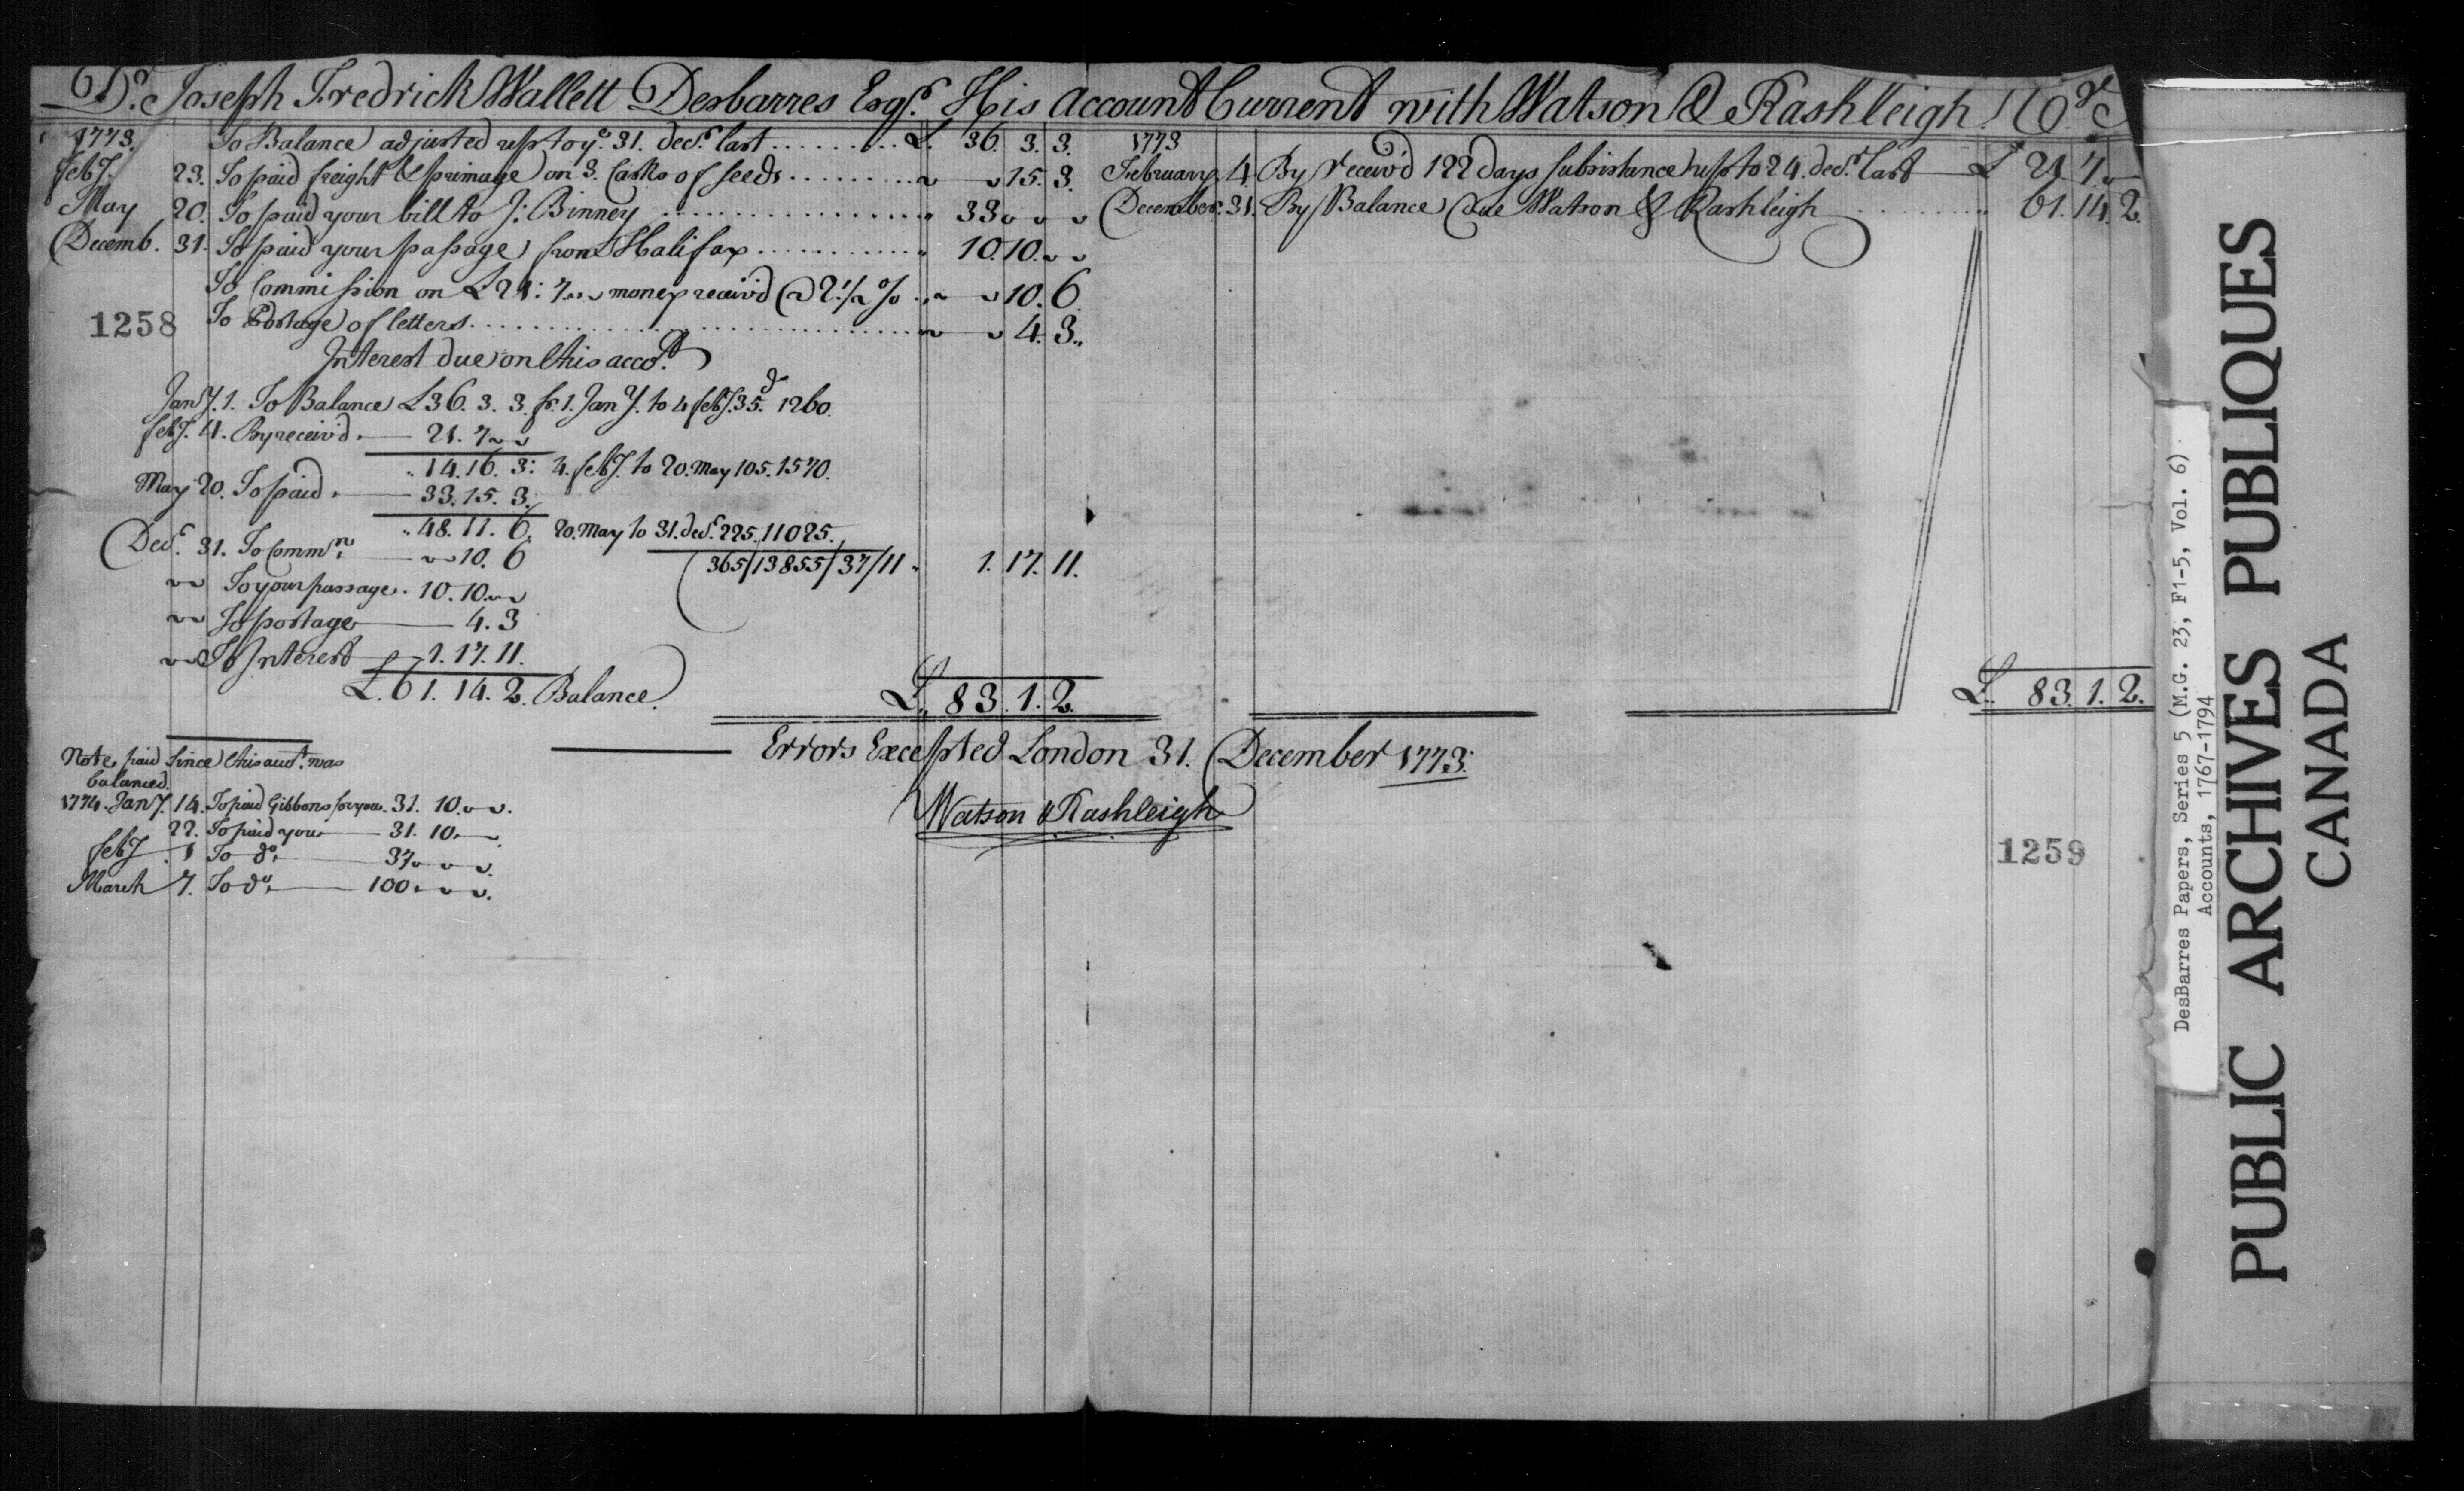 Dr. Joseph Fredrick Wallett Desbarres Esqr. His Account Current with Watson & Rashleigh Cr.
1773. To Balance adjusted up to ye. 31. decr. last .......... £. 36. 3. 3.
feby. 23. To paid freight & primage on 3. Casks of seeds .......... 15. 3.
May 20. To paid your bill to J: Binney .......... 33
Decemb. 31. To paid your passage from Halifax .......... 10. 10.
To Commission on £21: 7 money receiv'd @ 2 1/2 % 10. 6
To Postage of letters .......... 4. 3
1258
Interest due on this accot.
Jany. 1. To Balance £36. 3. 3. fr. 1. Jany. to 4 feby. 35.d 1260.
feby. 4. By receiv'd. 21. 7
14. 16. 3: 4. feby. to 20. may 105. 1570.
May 20. To paid 33. 15. 3.
48. 11. 6. 20. may to 31. decr. 225. 11025.
Decr. 31. To Commn. 10. 6
365/13855/37/11 1. 17. 11.
To your passage. 10. 10.
To postage 4. 3
To Interest 1. 17. 11.
£. 61. 14. 2. Balance.
£. 83. 1. 2.
1773
February. 4. By receiv'd 122 days subsistance up to 24. decr. last £ 21. 7.
December. 31. By Balance due Watson & Rashleigh .......... 61. 14. 2.
£. 83. 1. 2.
Errors Excepted London 31. December 1773.
Watson & Rashleigh
Note, paid since this accot. was
balanced.
1774. Jany. 14. To paid Gibbons for you. 31. 10.
22. To paid you 31. 10.
feby. 1 To do. 37.
March 7. To do. 100.
1259
DesBarres Papers, Series 5 (M.G. 23, F1-5, Vol. 6)
Accounts, 1767-1794
PUBLIC ARCHIVES PUBLIQUES
CANADA